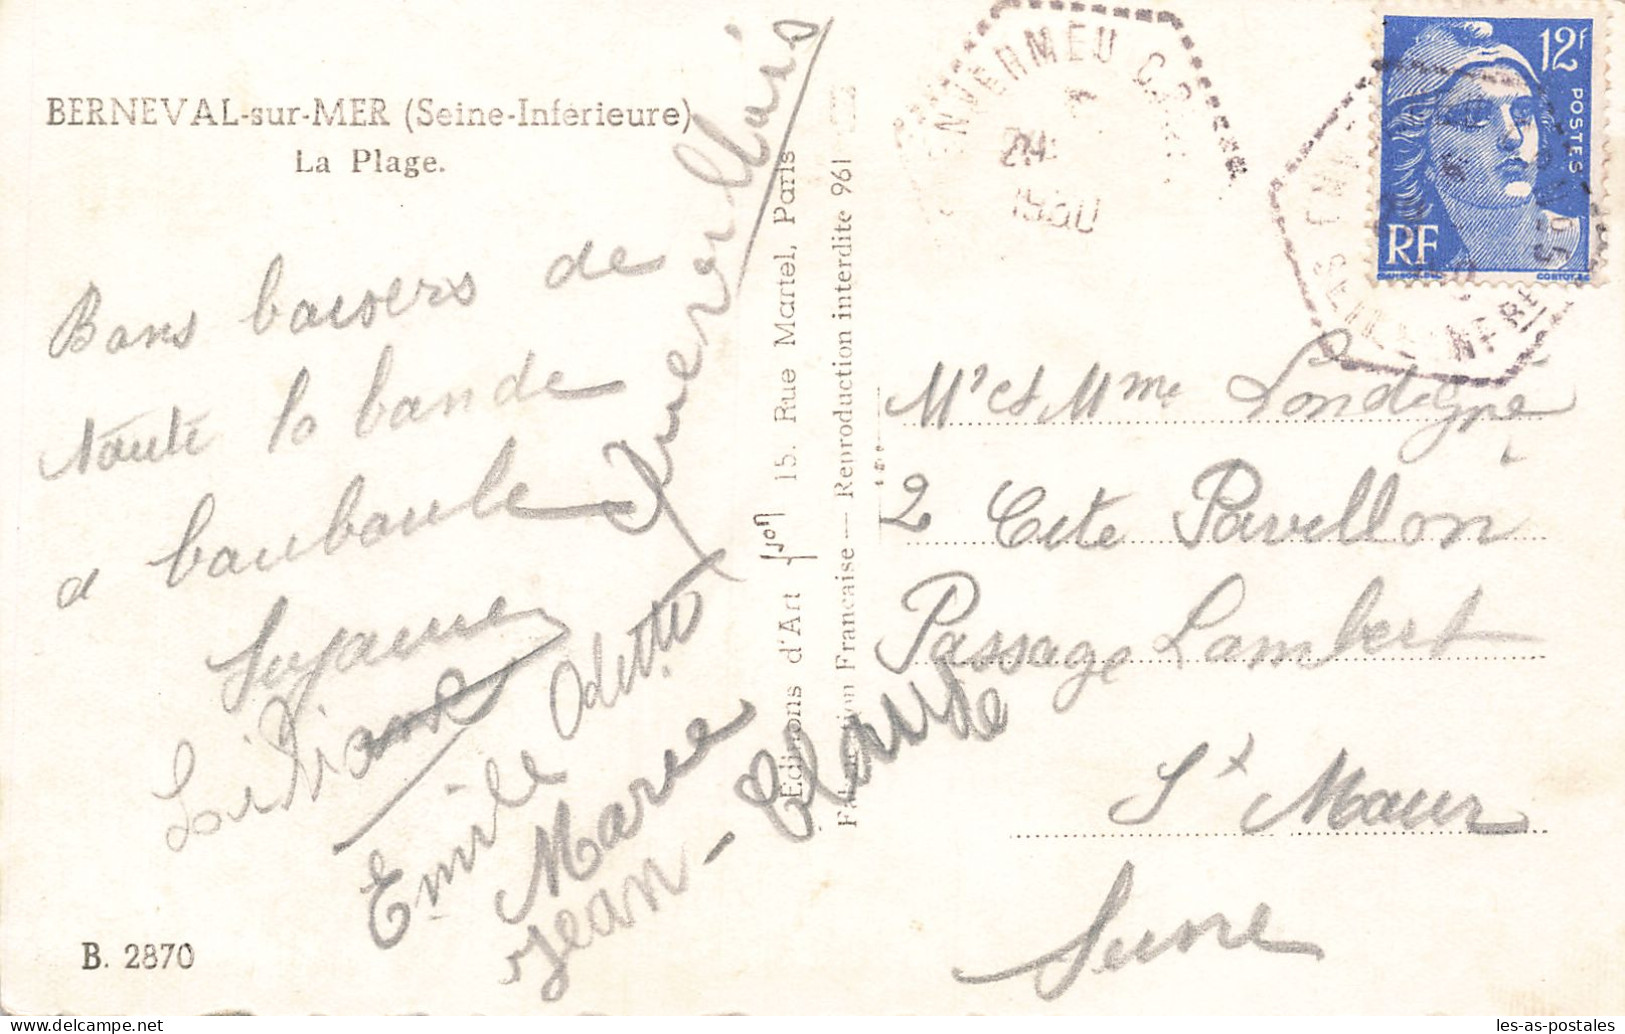 BERNEVAL-sur-MER (Seine-Inférieure)
La Plage.
Bons baisers de
toute la bande
a
Suzanne
Odette
Emile
Marie
Jean-Claude
B. 2870
Editions d'Art Yvon 15. Rue Martel, Paris
Fabrication Francaise — Reproduction interdite 961
ENVERMEU
1950
12F
POSTES
RF
Mr et Mme Londigné
2 Cité Pavillon
Passage Lambert
St Maur
Seine
les-as-postales